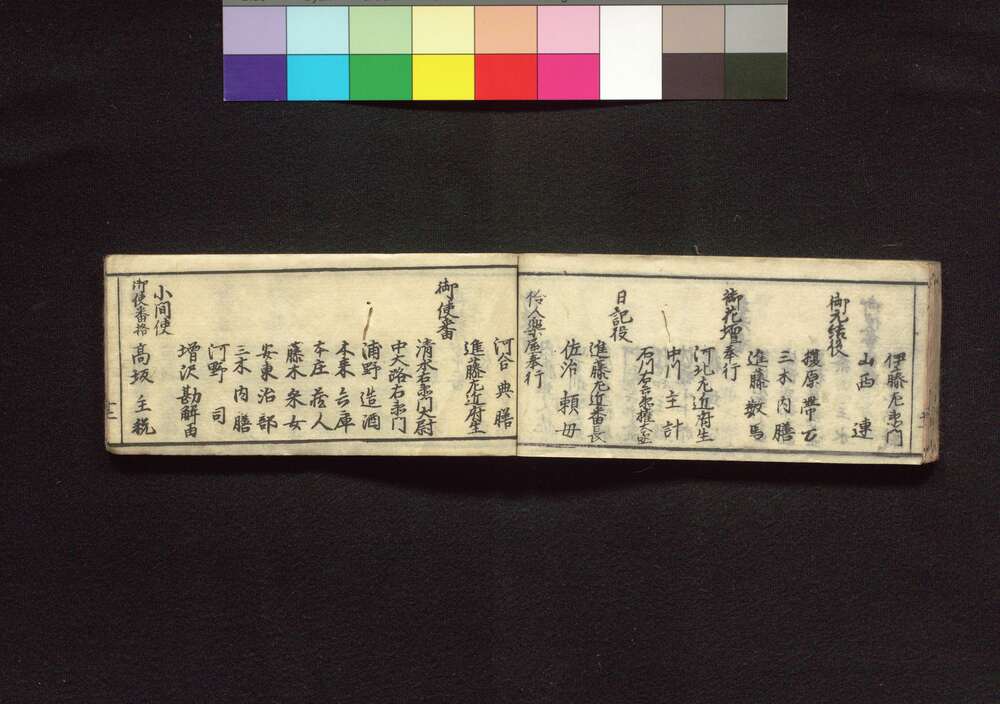 伊藤左衛門
山西連
御元結役
榎原帯刀
三木内膳
進藤数馬
御花壇奉行
河北左近府生
中川主計
石川右兵衛権大尉
日記役
進藤左近番長
佐治頼母
伶人楽屋奉行
河合典膳
進藤左近府生
御使番
清水右衛門大尉
中大路右衛門
浦野造酒
木来兵庫
本庄蔵人
藤木采女
安東治部
三木内膳
河野司
増沢勘解由
小間使
御使番格
高坂主税
十三